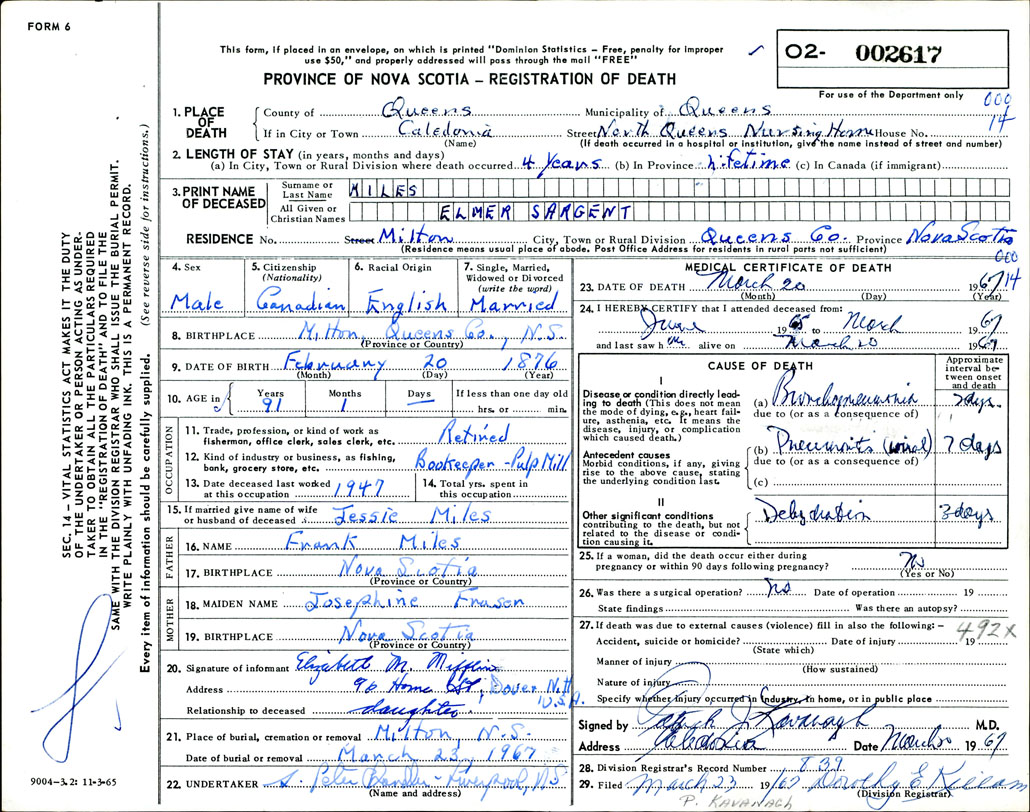 FORM 6
This form, if placed in an envelope, on which is printed "Dominion Statistics – Free, penalty for improper
use $50," and properly addressed will pass through the mail "FREE"
PROVINCE OF NOVA SCOTIA – REGISTRATION OF DEATH
O2- 002617
For use of the Department only
000
14
SEC. 14 – VITAL STATISTICS ACT MAKES IT THE DUTY
OF THE UNDERTAKER OR PERSON ACTING AS UNDER-
TAKER TO OBTAIN ALL THE PARTICULARS REQUIRED
IN THE "REGISTRATION OF DEATH" AND TO FILE THE
SAME WITH THE DIVISION REGISTRAR WHO SHALL ISSUE THE BURIAL PERMIT.
WRITE PLAINLY WITH UNFADING INK. THIS IS A PERMANENT RECORD.
Every item of information should be carefully supplied. (See reverse side for instructions.)
1. PLACE OF DEATH County of Queens Municipality of Queens
If in City or Town Caledonia Street North Queens Nursing Home House No.
(Name) (If death occurred in a hospital or institution, give the name instead of street and number)
2. LENGTH OF STAY (in years, months and days)
(a) In City, Town or Rural Division where death occurred 4 years (b) In Province lifetime (c) In Canada (if immigrant)
3. PRINT NAME OF DECEASED Surname or Last Name MILES
All Given or Christian Names ELMER SARGENT
RESIDENCE No. Street Milton City, Town or Rural Division Queens Co. Province Nova Scotia
(Residence means usual place of abode. Post Office Address for residents in rural parts not sufficient)
000
14
4. Sex Male
5. Citizenship (Nationality) Canadian
6. Racial Origin English
7. Single, Married, Widowed or Divorced (write the word) Married
8. BIRTHPLACE Milton, Queens Co., N.S.
(Province or Country)
9. DATE OF BIRTH February 20 1876
(Month) (Day) (Year)
10. AGE in Years 91 Months 1 Days — If less than one day old hrs. or min.
OCCUPATION
11. Trade, profession, or kind of work as fisherman, office clerk, sales clerk, etc. Retired
12. Kind of industry or business, as fishing, bank, grocery store, etc. Bookeeper - Pulp Mill
13. Date deceased last worked at this occupation 1947
14. Total yrs. spent in this occupation
15. If married give name of wife or husband of deceased Jessie Miles
FATHER
16. NAME Frank Miles
17. BIRTHPLACE Nova Scotia
(Province or Country)
MOTHER
18. MAIDEN NAME Josephine Fraser
19. BIRTHPLACE Nova Scotia
(Province or Country)
20. Signature of informant Elizabeth M. Mifflin
Address 96 Home St, Dover N.H U.S.A.
Relationship to deceased daughter
21. Place of burial, cremation or removal Milton, N.S.
Date of burial or removal March 23, 1967
22. UNDERTAKER Liverpool, N.S
(Name and address)
9004-3.2: 11-3-65
MEDICAL CERTIFICATE OF DEATH
23. DATE OF DEATH March 20 1967
(Month) (Day) (Year)
24. I HEREBY CERTIFY that I attended deceased from:
June 1965 to March 1967
and last saw him alive on March 20 1967
CAUSE OF DEATH
Approximate interval between onset and death
I
Disease or condition directly leading to death (This does not mean the mode of dying, e.g., heart failure, asthenia, etc. It means the disease, injury, or complication which caused death.)
(a) Bronchopneumonia 2 days
due to (or as a consequence of)
Antecedent causes
Morbid conditions, if any, giving rise to the above cause, stating the underlying condition last.
(b) Pneumonitis (viral) 7 days
due to (or as a consequence of)
(c)
II
Other significant conditions contributing to the death, but not related to the disease or condition causing it.
Dehydration 3 days
25. If a woman, did the death occur either during pregnancy or within 90 days following pregnancy? No
(Yes or No)
26. Was there a surgical operation? No Date of operation 19
State findings Was there an autopsy?
27. If death was due to external causes (violence) fill in also the following: – 492X
Accident, suicide or homicide? Date of injury 19
(State which)
Manner of injury
(How sustained)
Nature of injury
Specify whether injury occurred in Industry, in home, or in public place
Signed by Patrick J Kavanagh M.D.
Address Caledonia Date March 20 1967
28. Division Registrar's Record Number T.39
29. Filed March 23 1967 Dorothy E
(Division Registrar)
P. KAVANAGH